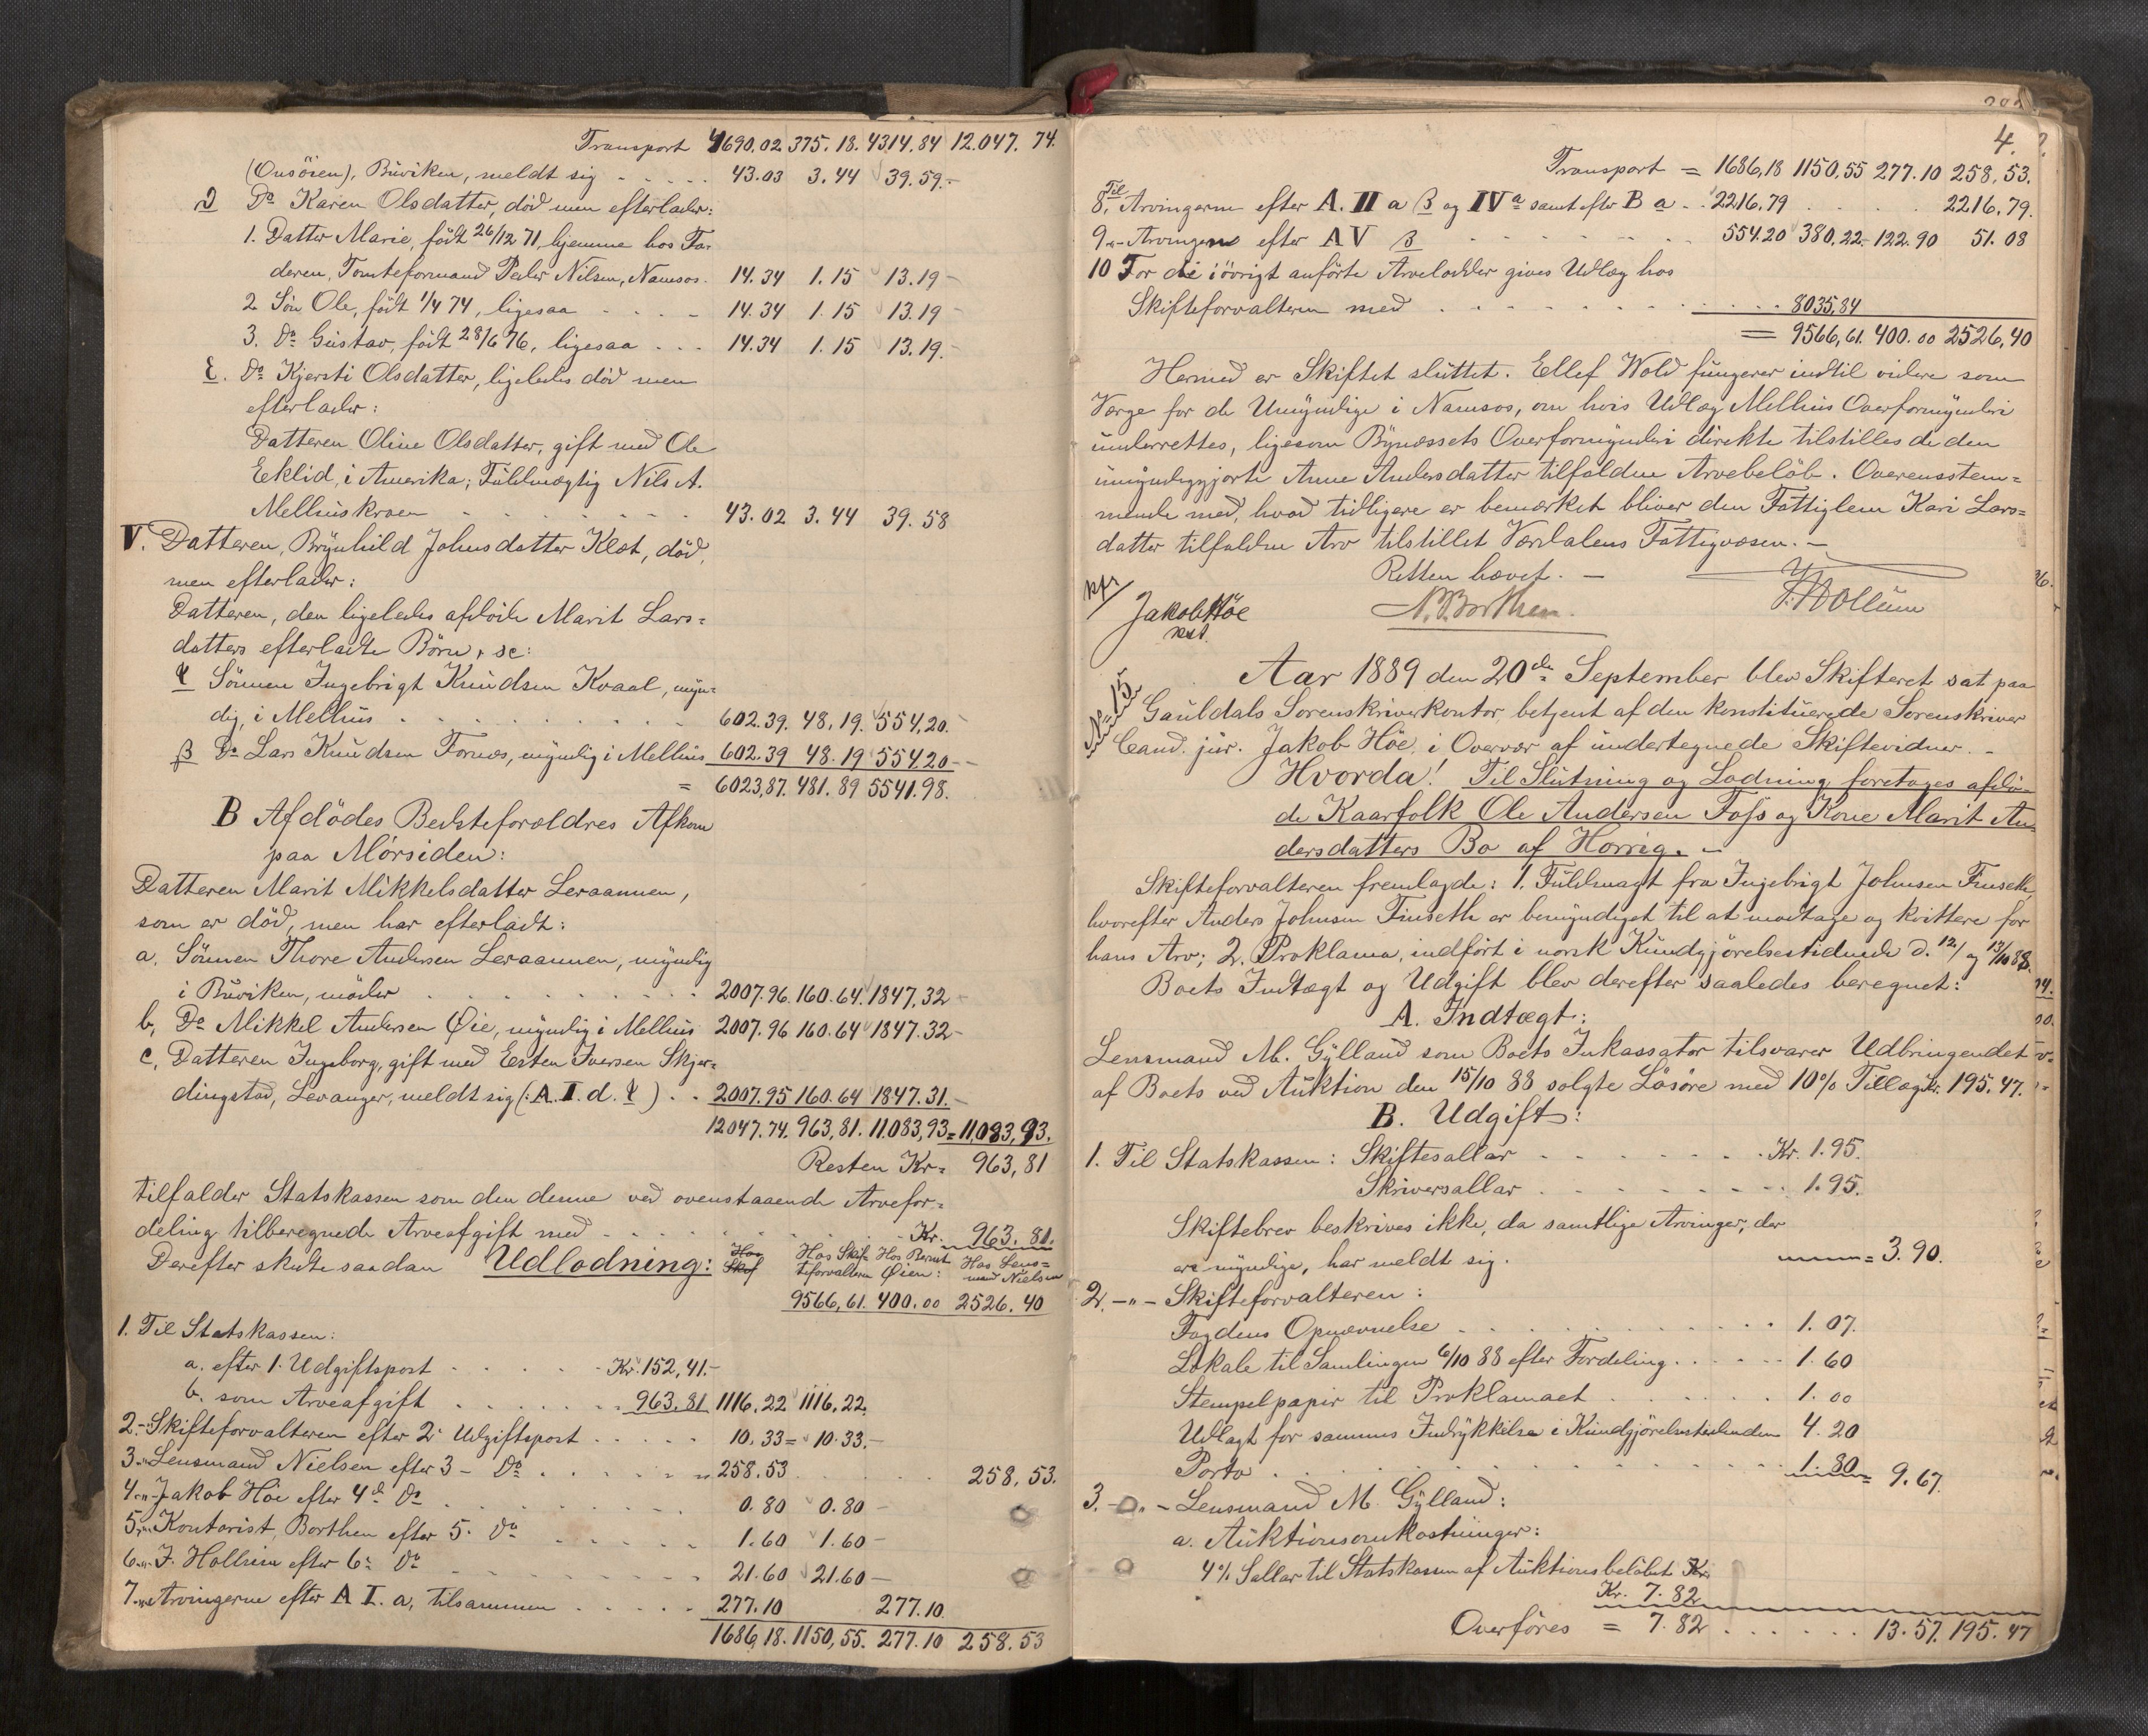 Transport 4690.02 375.18. 4314.84 12.047. 74.
(Onsören), Büviken, meldt sig 43.03 3.44 39.59.-
Do Karen Olsdatter, död men efterlader:
1. Datter Marie, födt 26/12 71, hjemme hos Fa-
deren, Tomteformand Peder Nilsen, Namsos. 14.34 1.15 13.19-
2. Sön Ole, födt 1/4 74, ligesaa 14.34 1.15 13.19-
3. Do Gustav, födt 28/6 76, ligesaa 14.34 1.15 13.19.-
ε. Do Kjersti Olsdatter, ligeledes död men
efterlader:
Datteren Oline Olsdatter, gift med Ole
Eeklid, i Amerika; Fuldmægtig Nils A.
Melhuskroen 43.02 3.44 39.58
V. Datteren, Brynhild Johnsdatter Klæt, död,
men efterlader:
Datteren, den ligeledes afdöde Marit Lars=
datters efterladte Börn, sc:
α Sönnen Ingebrigt Knudsen Kvaal, myn=
dig, i Melhus 602.39. 48.19. 554,20.-
β Do Lars Knudsen Fornæs, myndig i Melhus 602.39 48.19 554.20-
= 6023,87. 481.89 5541.98.
B Afdödes Bedsteforældres Afkom
paa Mórsiden:
Datteren Marit Mikkelsdatter Leraannen,
som er död, men har efterladt:
a. Sönnen Thore Andersen Leraannen, myndig
i Büviken, möder 2007.96. 160.64. 1847,32-
b, Do Mikkel Andersen Øie, myndig i Melhus 2007.96 160.64 1847.32-
c, Datteren Ingeborg, gift med Esten Iversen Skjer-
dingstad, Levanger, meldt sig (: A. I. d. α) 2007.95 160.64 1847.31.-
12047.74. 963,81. 11.083,93 = 11,083,93.
Resten Kr. 963,81
tilfalder Statskassen som den denne ved ovenstaaende Arvefor=
deling tilberegnede Arveafgift med Kr. 963.81.
Derefter skete saadan Udlodning: Hos Skif Hos Skif- teforvalteren Hos Bernt Øien: Hos Lens= mand Nielsen
9566,61. 400.00 2526.40
1. Til Statskassen:
a. efter 1. Udgiftspost Kr. 152,41.-
b. som Arveafgift 963.81 1116.22 1116,22.
2.-"Skifteforvalteren efter 2 Udgiftspost 10.33= 10.33.-
3-"Lensmand Nielsen efter 3 - Do 258.53 258,53.
4."-Jakob Höe efter 4de Do 0.80 0.80-
5."-Kontorist, Borthen efter 5. Do 1.60 1.60-
6."-J. Hollum efter 6: Do 21.60 21.60-
7."-Arvingerne efter A I. a, tilsammen 277.10 277.10
1686,18. 1150,55. 277.10 258.53
4.
Transport = 1686,18 1150,55 277.10 258,53.
8. Til Arvingerne efter A. II a β og IV a samt efter B a 2216.79 2216.79.
9."-Arvingerne efter A V β 554.20 380,22- 122.90 51.08
10 For de iövrigt anförte Arvelodder gives Udlæg hos
Skifteforvalteren med 8035,84
= 9566,61. 400.00 2526,40
Hermed er Skiftet sluttet. Ellef Wold fungerer indtil videre som
Værge for de Umyndige i Namsos, om hvis Udlæg Melhus Overformynderi
underrettes, ligesom Bynæssets Overformynderi direkte tilstilles de den
umyndiggjorte Anne Andersdatter tilfaldne Arvebelöb. Overensstem=
mende med, hvad tidligere er bemærket bliver den Fattiglem Kari Lars=
datter tilfaldne Arv tilstillet Værdalens Fattigvæsen.-
Retten hævet.-
Jakob Höe
kst.
N. Borthen.
J. Hollum
No 15.
Aar 1889 den 20de September blev Skifteret sat paa
Gauldals Sorenskriverkontor, betjent af den konstituerede Sorenskriver
Cand. jur. Jakob Höe, i Overvær af undertegnede Skiftevidner.-
Hvorda! Til Slutning og Lodning foretoges afdö=
de Kaarfolk Ole Andersen Foss og Kone Marit An=
dersdatters Bo af Horrig.-
Skifteforvalteren fremlagde: 1. Fuldmagt fra Ingebrigt Johnsen Finseth,
hvorefter Anders Johnsen Finseth er bemyndiget til at modtage og kvittere for
hans Arv; 2. Proklama, indfört i norsk Kundgjörelsestidende d. 12/ og 13/10 88.
Boets Indtægt og Udgift blev derefter saaledes beregnet:
A. Indtægt:
Lensmand M. Gylland som Boets Inkassator tilsvarer Udbringendet
af Boets ved Auktion den 15/10 88 solgte Lösöre med 10% Tillæg Kr. 195.47.
B. Udgift:
1. Til Statskassen: Skiftesallar Kr. 1.95.
Skriversallar 1.95.
Skiftebrev beskrives ikke, da samtlige Arvinger, der
ere myndige, har meldt sig. = 3.90.
2. -"- Skifteforvalteren:
Fogdens Opnævnelse 1.07.
Lokale til Samlingen 6/10 88 efter Fordeling 1.60
Stempelpapir til Proklamaet 1.00
Udlagt for sammes Indrykkelse i Kundgjörelsestidenden 4.20
Porto 1.80 = 9.67.
3. -"- Lensmand M. Gylland:
a. Auktionsomkostninger:
4% Sallar til Statskassen af Auktionsbelöbet Kr.
Kr. 7.82
Overföres = 7.82 13.57. 195.47